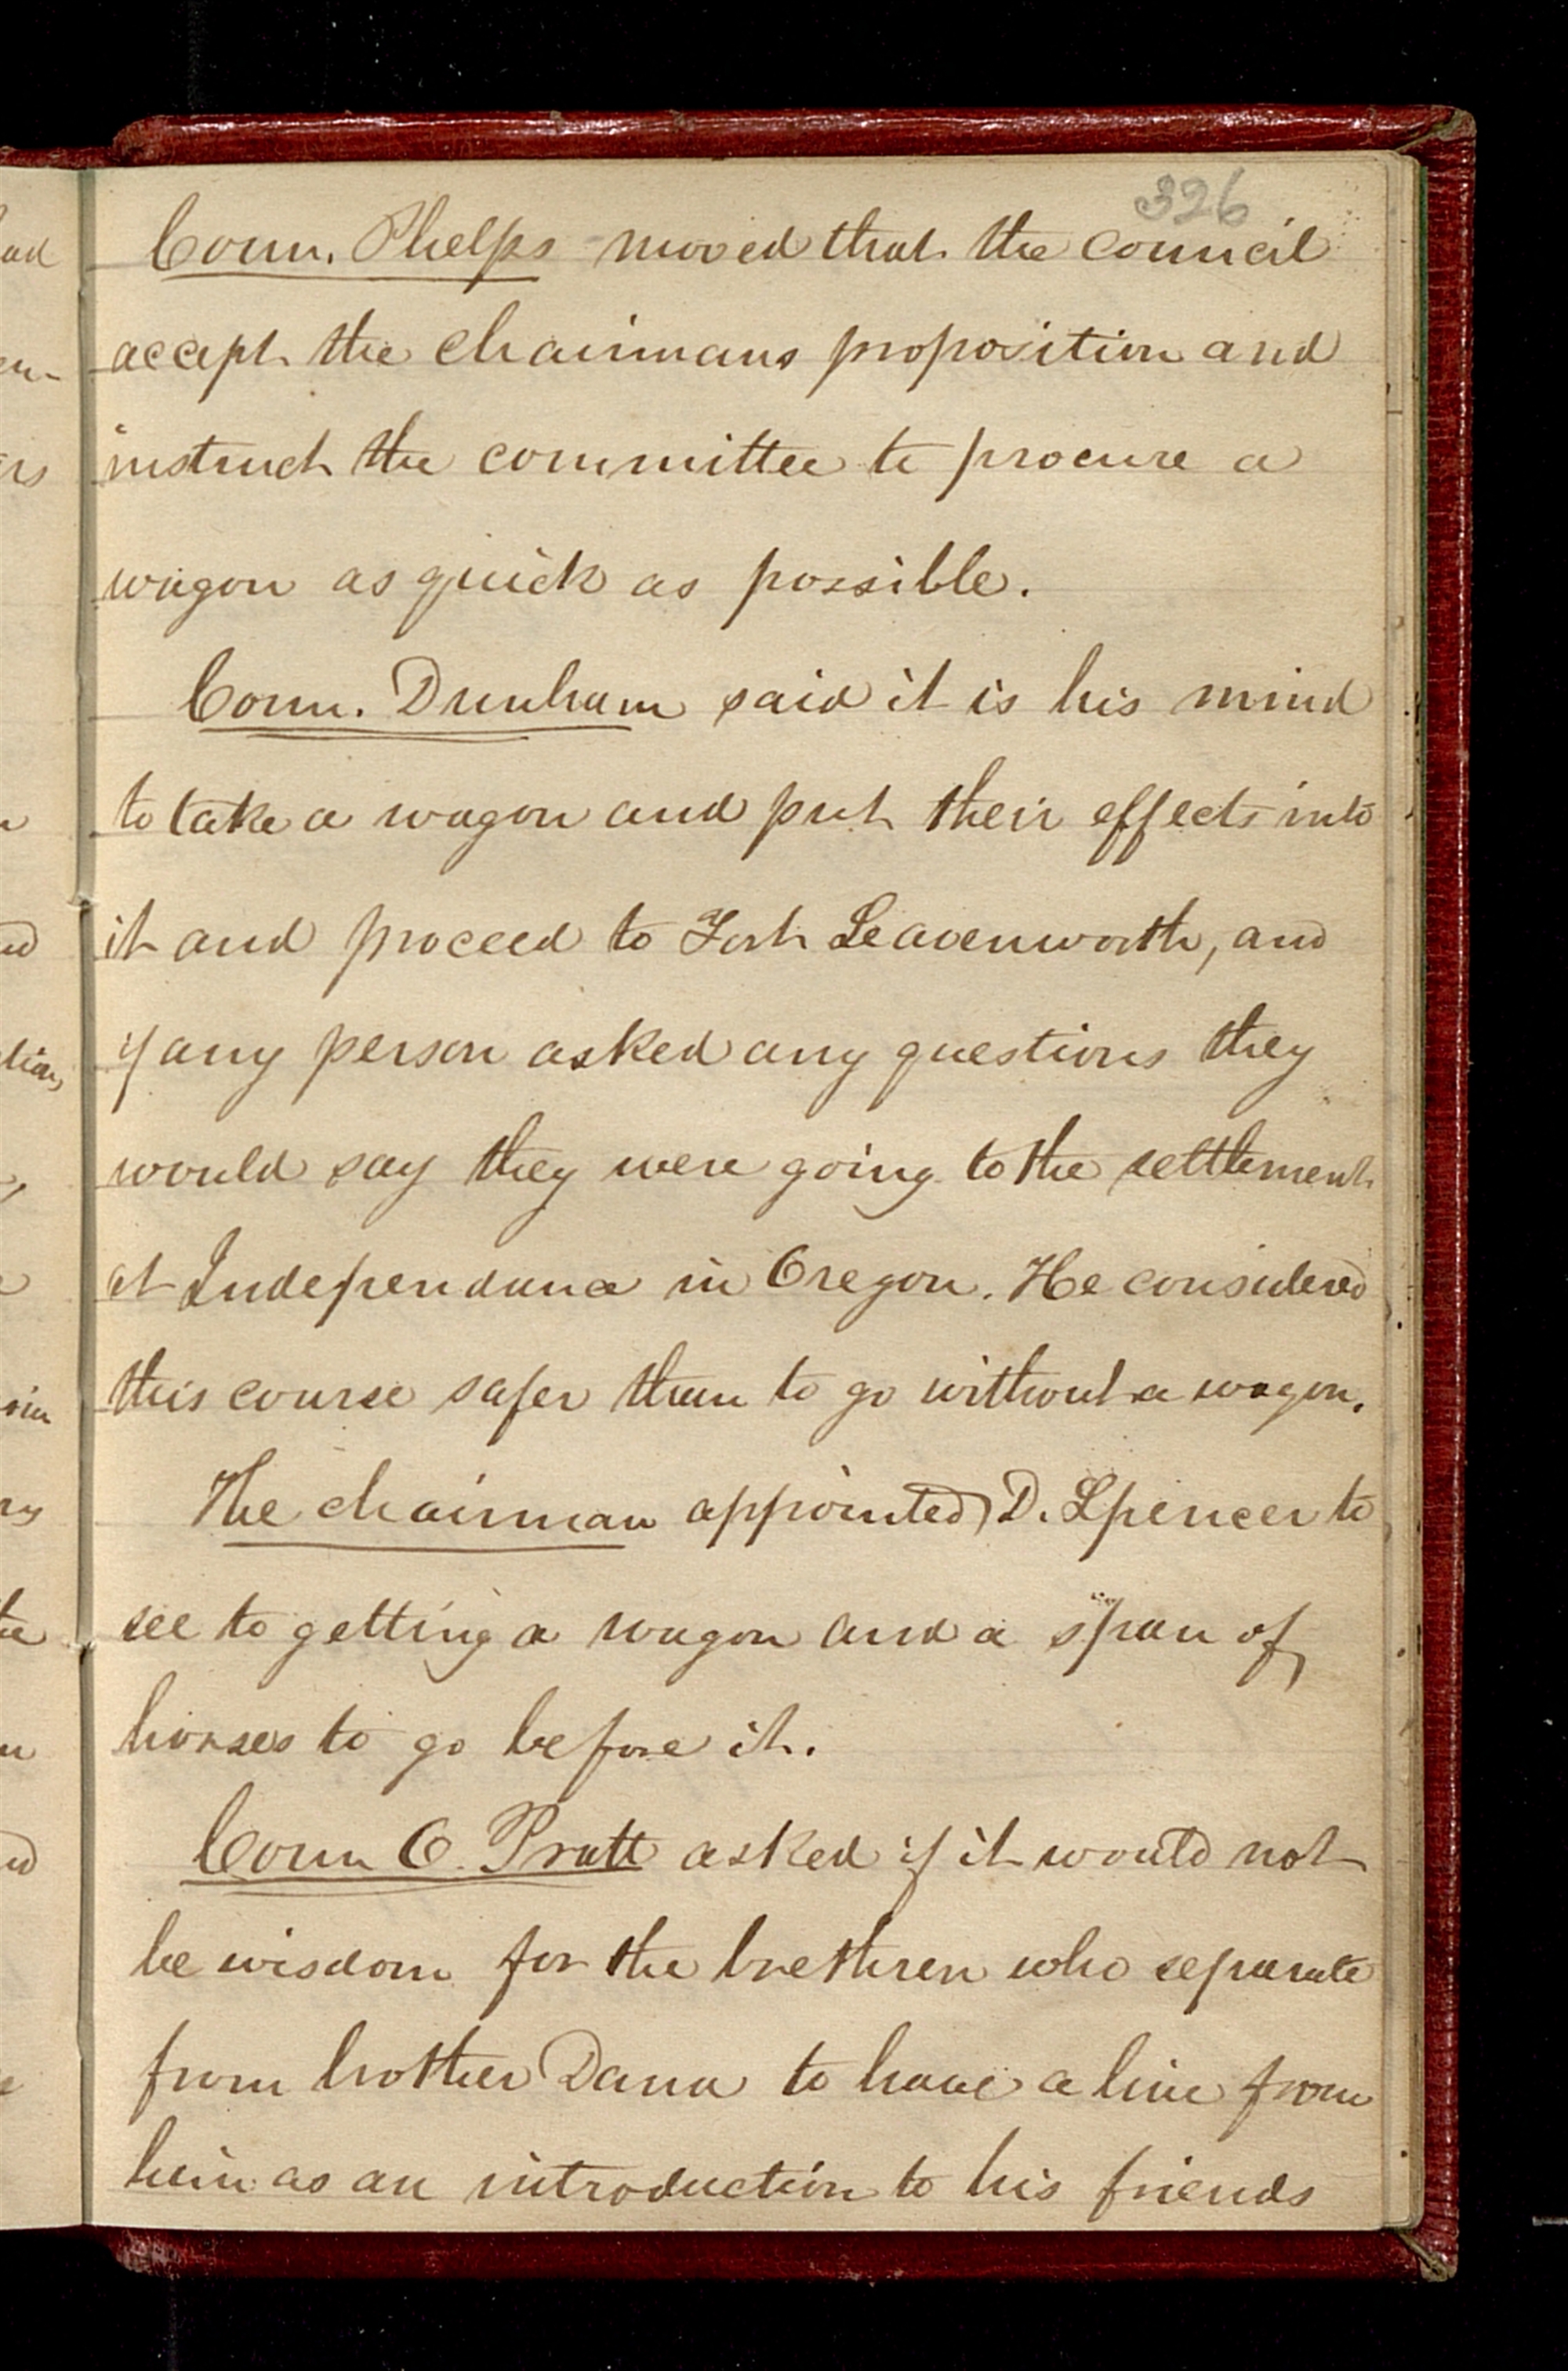 326
Coun. Phelps moved that the council
accept the chairmans proposition and
instruct the committee to procure a
wagon as quick as possible.
Coun. Dunham said it is his mind
to take a wagon and put their effects into
it and proceed to Fort Leavenworth, and
if any person asked any questions they
would say they were going to the settlement
at Independance in Oregon. He considered
this course safer than to go without a wagon.
The chairman appointed D. Spencer to
see to getting a wagon and a span of
horses to go before it.
Coun O. Pratt asked if it would not
be wisdom for the brethren who separate
from brother Dana to have a line from
him as an introduction to his friends